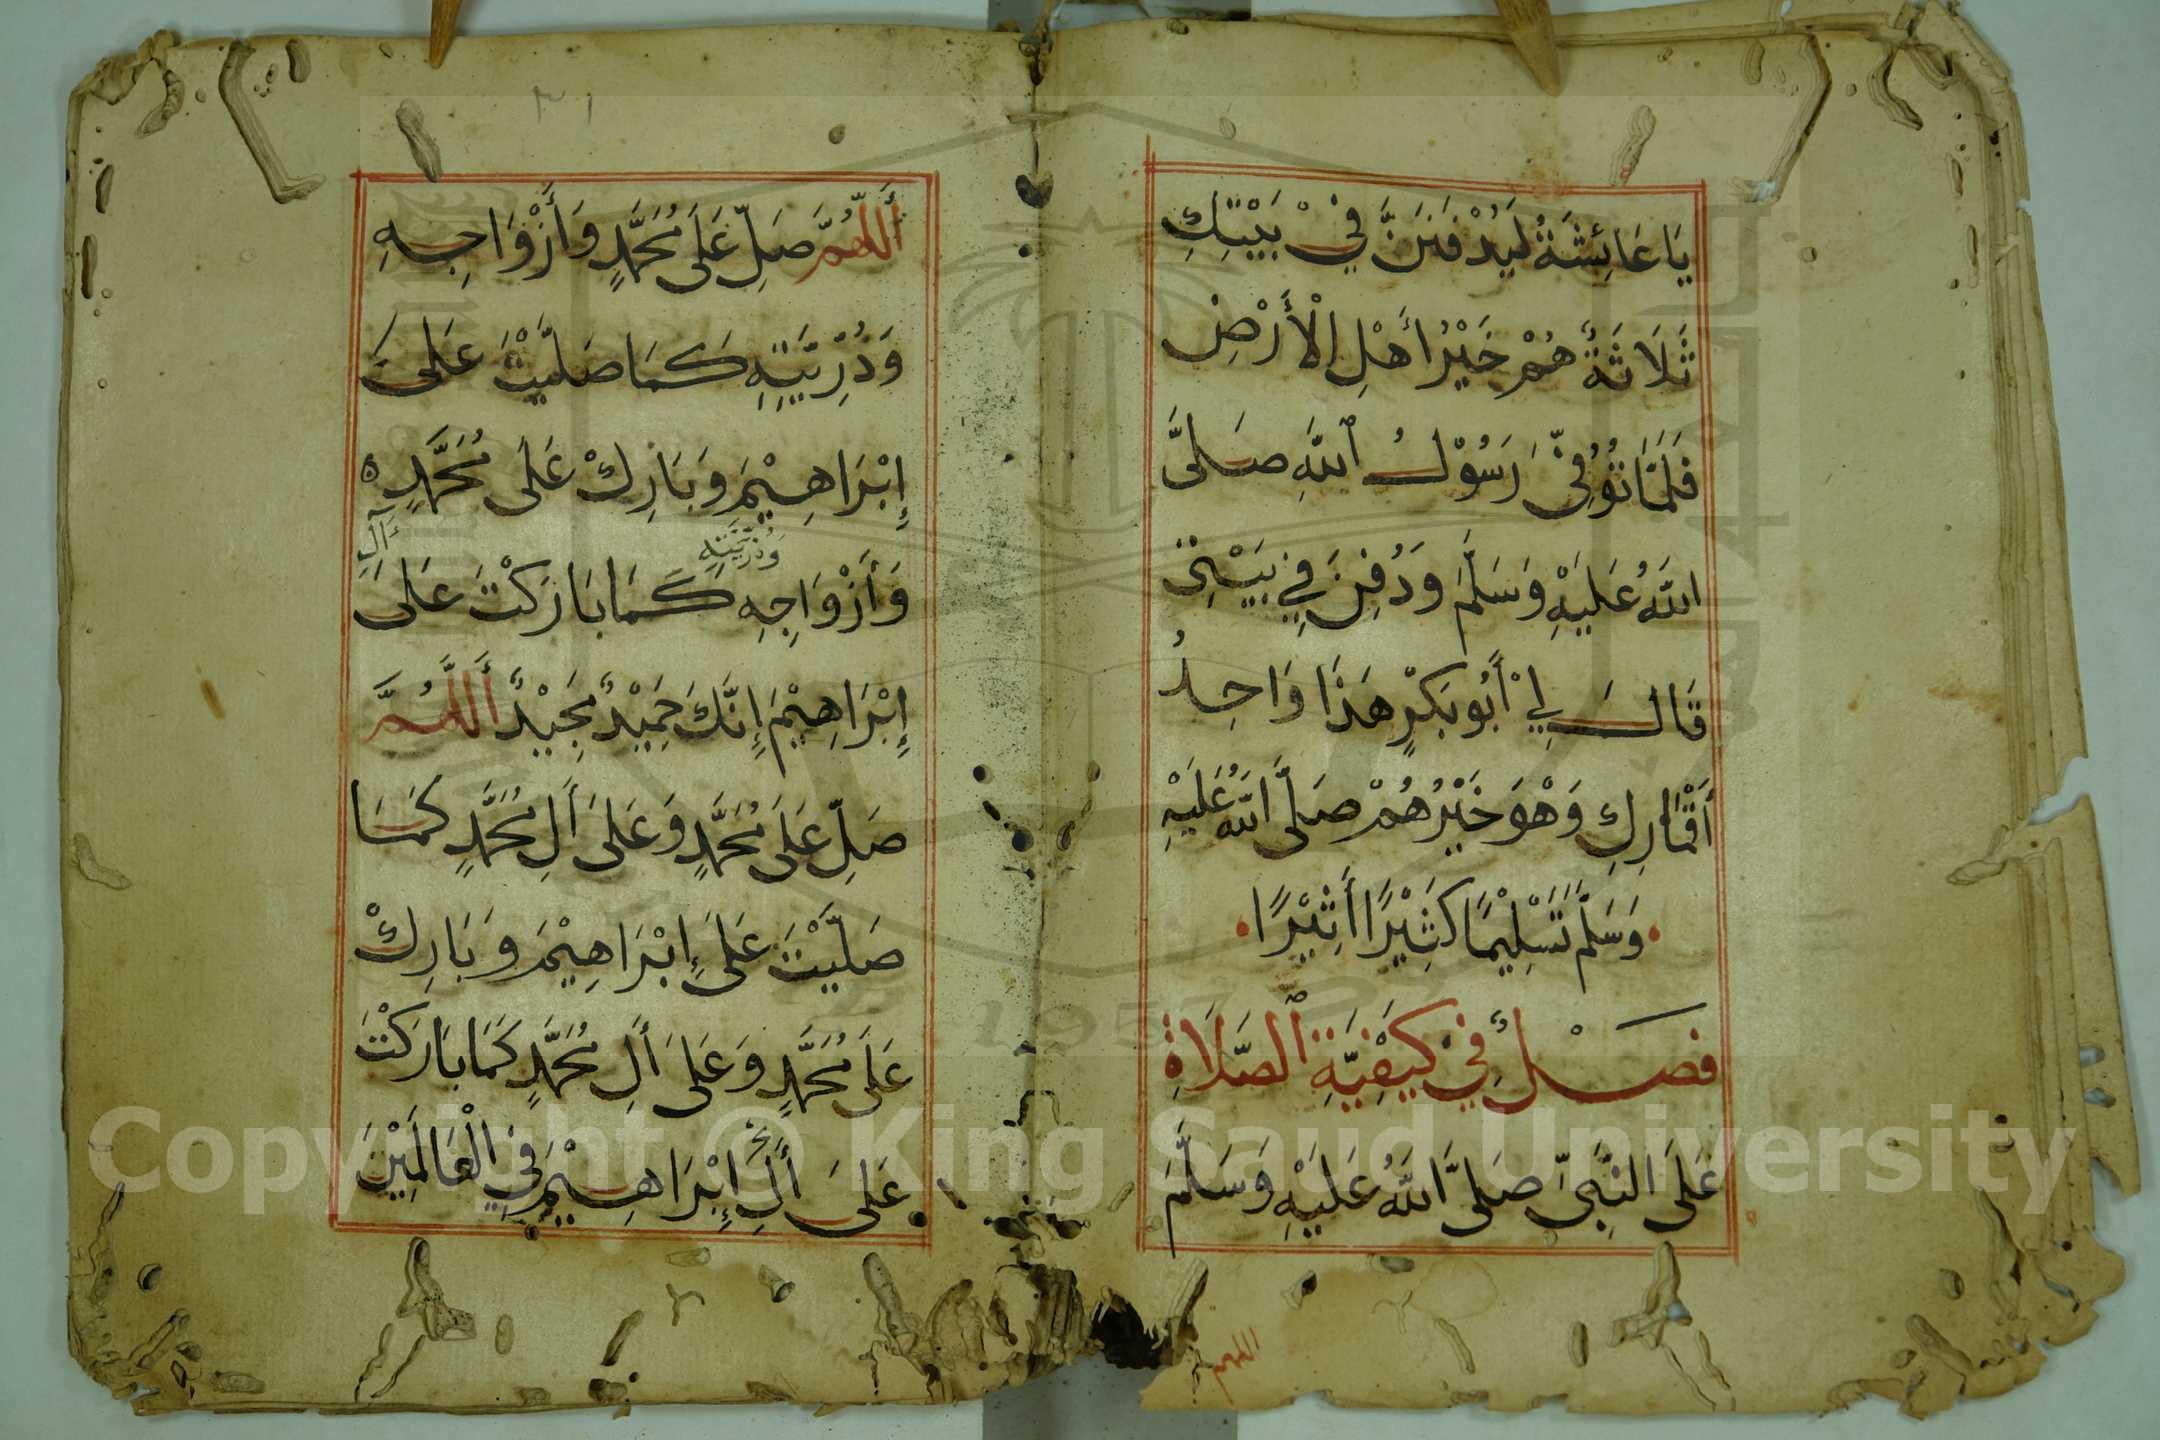 يَا عَائِشَةُ لَيُدْفَنَنَّ فِيْ بَيْتِكِ
ثَلَاثَةٌ هُمْ خَيْرُ أَهْلِ الْأَرْضِ
فَلَمَّا تُوُفِّيَ رَسُوْلُ اللهِ صَلَّى
اللهُ عَلَيْهِ وَسَلَّمَ وَدُفِنَ فِي بَيْتِيْ
قَالَ لِيْ أَبُو بَكْرٍ هَذَا وَاحِدُ
أَقْمَارِكِ وَهْوَ خَيْرُهُمْ صَلَّى اللهُ عَلَيْهِ
وَسَلَّمَ تَسْلِيْمًا كَثِيْرًا أَثِيْرًا
فَصْلٌ فِي كَيْفِيَّةِ الصَّلَاةِ
عَلَى النَّبِيِّ صَلَّى اللهُ عَلَيْهِ وَسَلَّمَ
اللهم
٣١
أَللّٰهُمَّ صَلِّ عَلَى مُحَمَّدٍ وَأَزْوَاجِهِ
وَذُرِّيَّتِهِ كَمَا صَلَّيْتَ عَلَى
إِبْرَاهِيْمَ وَبَارِكْ عَلَى مُحَمَّدٍ
وَذُرِّيَّتِهِ أٰلِ
وَأَزْوَاجِهِ كَمَا بَارَكْتَ عَلَى
إِبْرَاهِيْمَ إِنَّكَ حَمِيْدٌ مَجِيْدٌ أَللّٰهُمَّ
صَلِّ عَلَى مُحَمَّدٍ وَعَلَى أَلِ مُحَمَّدٍ كَمَا
صَلَّيْتَ عَلَى إِبْرَاهِيْمَ وَبَارِكْ
عَلَى مُحَمَّدٍ وَعَلَى أَلِ مُحَمَّدٍ كَمَا بَارَكْتَ
عَلَى أَلِ إِبْرَاهِيْمَ فِي الْعَالَمِيْنَ
Copyright © King Saud University
1957